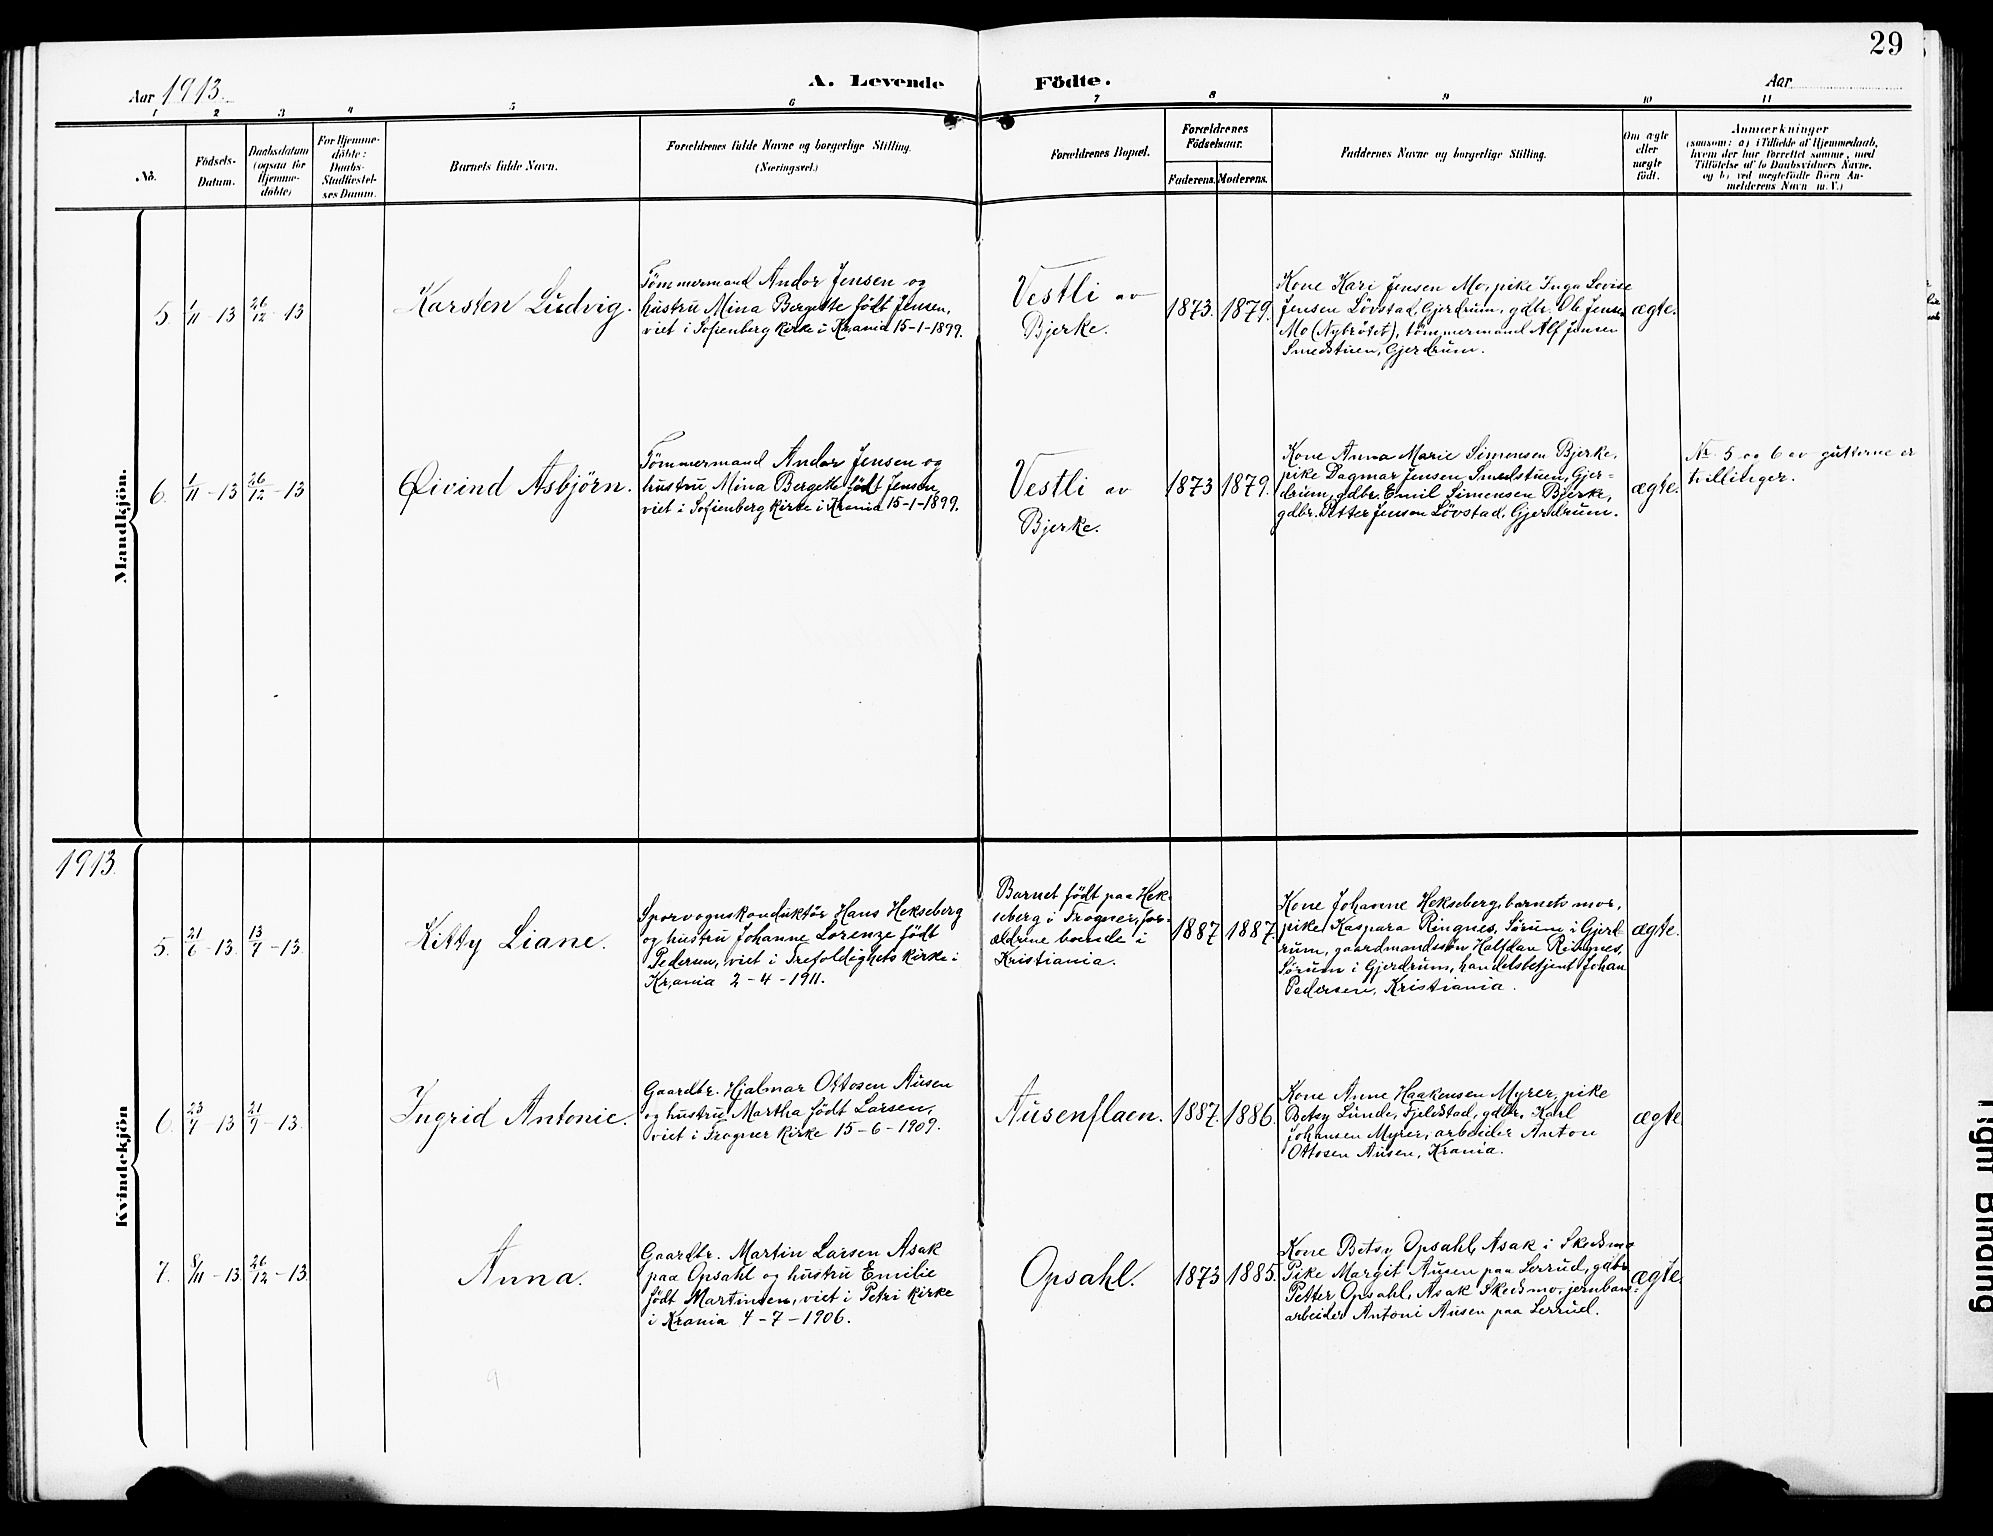 29
Aar 1913.
A. Levende Födte.
Aar
1 2 3 4 5 6 7 8 9 10 11
No.
Födsels-
Datum.
Daabsdatum
(ogsaa for
Hjemme-
döbte)
For Hjemme-
döbte:
Daabs-
Stadfæstel-
ses Datum.
Barnets fulde Navn.
Forældrenes fulde Navne og borgerlige Stilling.
(Næringsvei.)
Forældrenes Bopæl.
Forældrenes
Födselsaar.
Faderens. Moderens.
Faddernes Navne og borgerlige Stilling.
Om ægte
eller
uægte
födt.
Anmærkninger
(saasom: a) i Tilfælde af Hjemmedaab,
hvem der har forrettet samme, med
Tilföielse af to Daabsvidners Navne,
og b) ved uægtefödte Börn An-
melderens Navn m. V.)
Mandkjön.
5. 1/11 - 13 26/12 - 13
Karsten Ludvig.
Tömmermand Andor Jensen og
hustru Mina Bergette födt Jensen,
viet i Sofienberg kirke i Krania 15-1-1899.
Vestli av
Bjerke.
1873. 1879.
Kone Kari Jensen Mo, pike Inga Lovise
Jensen Lövstad, Gjerdrum, gdbr. Ole Jensen
Mo (Nybrötet), tömmermand Alf Jensen
Smedstuen, Gjerdrum.
ægte.
6. 1/11 - 13 26/12 - 13
Øivind Asbjörn.
Tömmermand Andor Jensen og
hustru Mina Bergette födt Jensen,
viet i Sofienberg kirke i Krania 15-1-1899.
Vestli av
Bjerke.
1873 1879.
Kone Anna Marie Simensen Bjerke,
pike Dagmar Jensen Smedstuen, Gjer-
drum, gdbr. Emil Simensen Bjerke,
gdbr. Petter Jensen Lövstad, Gjerdrum.
ægte.
Nr. 5 og 6 av gutterne er
tvillinger.
1913.
Kvindekjön
5. 21/6 - 13 13/7 - 13.
Kitty Liane.
Sporvognskonduktör Hans Hekseberg
og hustru Johanne Lorenze födt
Pedersen, viet i Trefoldighets kirke i
Krania 2-4-1911.
Barnet födt paa Hek-
seberg i Frogner, for-
ældrene boende i
Kristiania.
1887 1887.
Kone Johanne Hekseberg, barnets mor,
pike Kaspara Ringnes, Sörum i Gjerd-
rum, gaardmandssön Halfdan Ringnes,
Sörum i Gjerdrum, handelsbetjent Johan
Pedersen, Kristiania.
ægte.
6. 23/7 - 13 21/9 - 13.
Ingrid Antonie.
Gaardbr. Hjalmar Ottosen Ausen
og hustru Martha födt Larsen,
viet i Frogner kirke 15-6-1909.
Ausenflaen.
1887. 1886.
Kone Anne Haakensen Myrer, pike
Betsy Lunde, Fjeldstad, gdbr. Karl
Johansen Myrer, arbeider Anton
Ottosen Ausen, Krania.
ægte
7. 8/11 - 13. 26/12 - 13.
Anna.
Gaardbr. Martin Larsen Asak
paa Opsahl og hustru Emilie
födt Martinsen, viet i Petri kirke
i Krania 4-7-1906.
Opsahl.
1873 1885.
Kone Betsy Opsahl, Asak i Skedsmo
Pike Margit Ausen paa Lerrud, gdbr.
Petter Opsahl, Asak Skedsmo, jernbane-
arbeider Antoni Ausen paa Lerrud.
ægte.
Binding